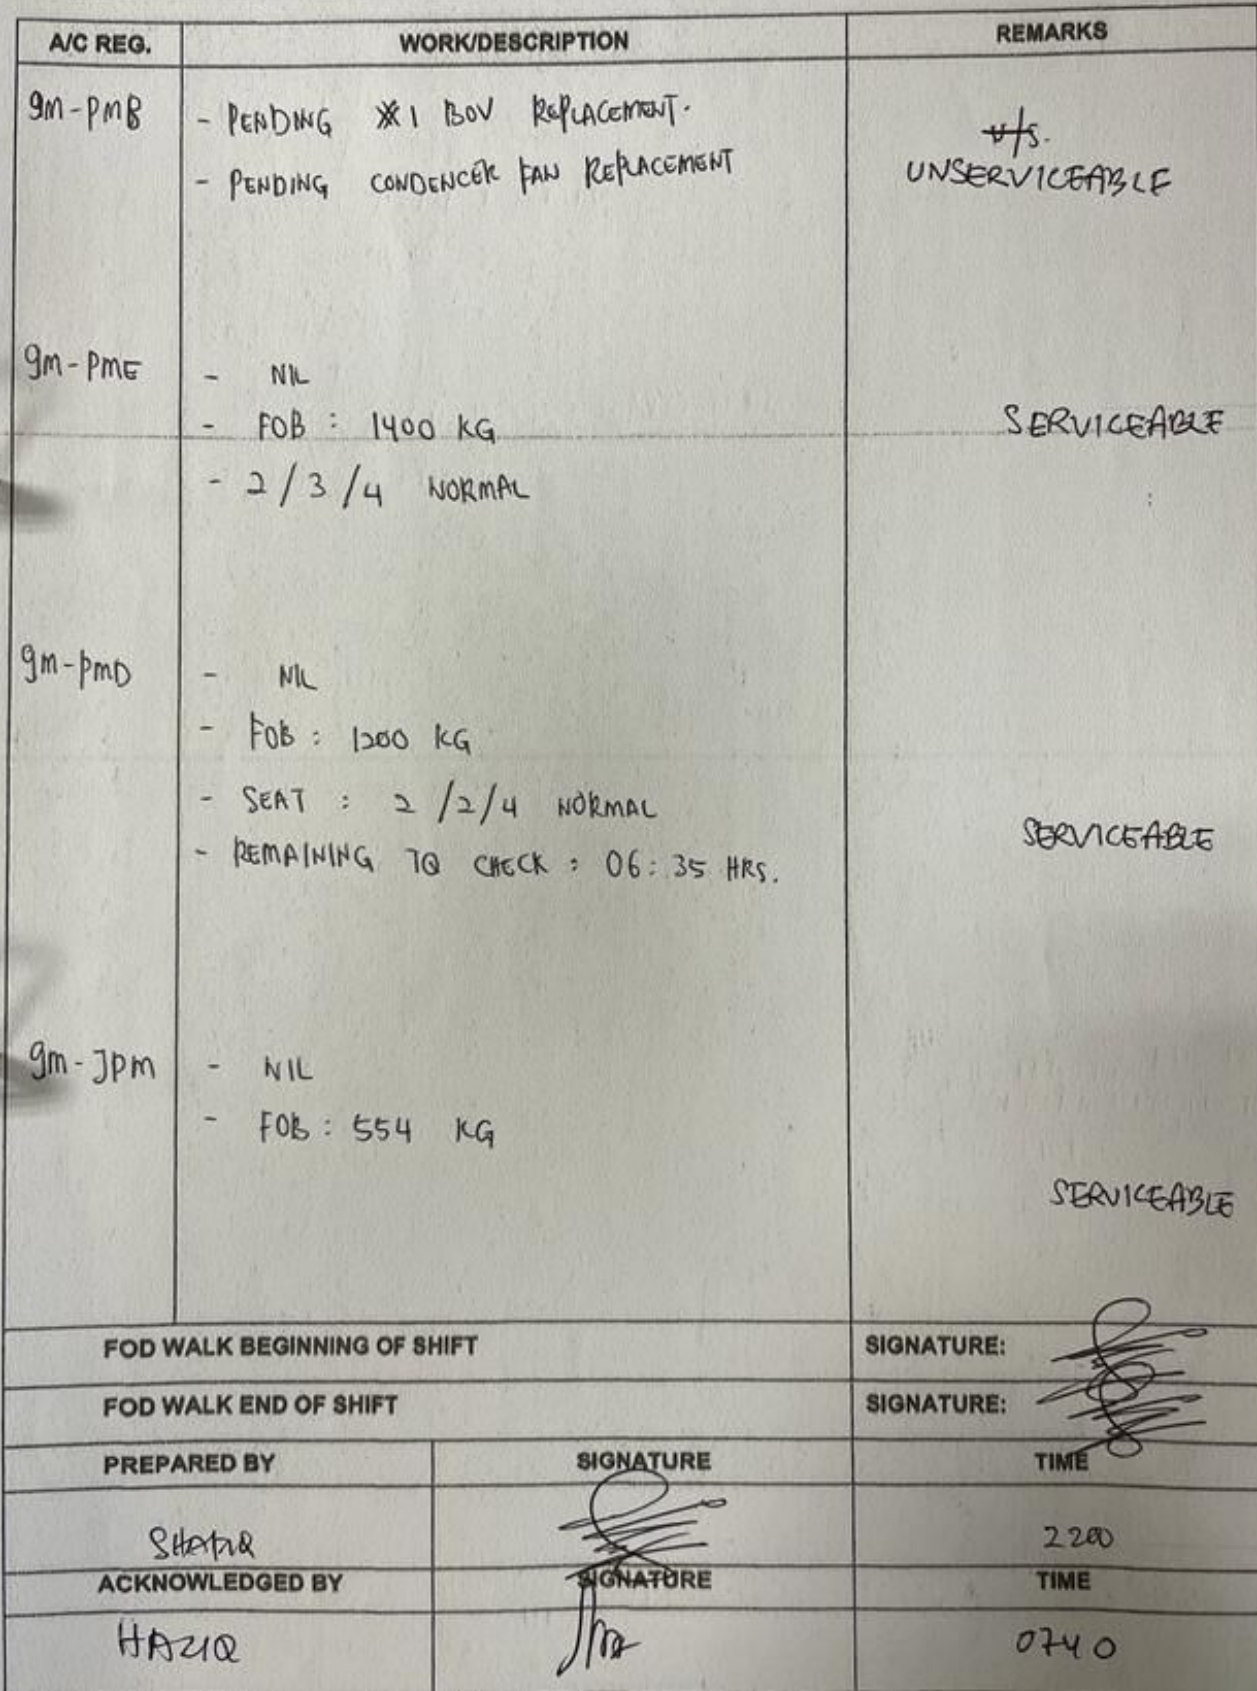 A/C REG. WORK/DESCRIPTION REMARKS
9m-PMB - PENDING #1 BOV REPLACEMENT.
u/s.
- PENDING CONDENCER FAN REPLACEMENT UNSERVICEABLE
9m-PME - NIL
- FOB : 1400 KG SERVICEABLE
- 2/3/4 NORMAL
9m-PMD - NIL
- FOB : 1200 KG
- SEAT : 2/2/4 NORMAL
SERVICEABLE
- REMAINING TQ CHECK : 06:35 HRS.
9m-JPM - NIL
- FOB : 554 KG
SERVICEABLE
FOD WALK BEGINNING OF SHIFT SIGNATURE:
FOD WALK END OF SHIFT SIGNATURE:
PREPARED BY SIGNATURE TIME
2200
ACKNOWLEDGED BY SIGNATURE TIME
HAZIQ 0740